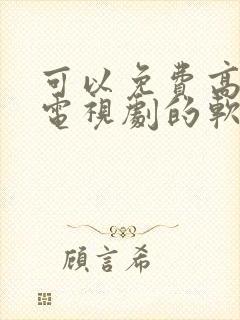 可以免費高
電視劇的軟
顧言希